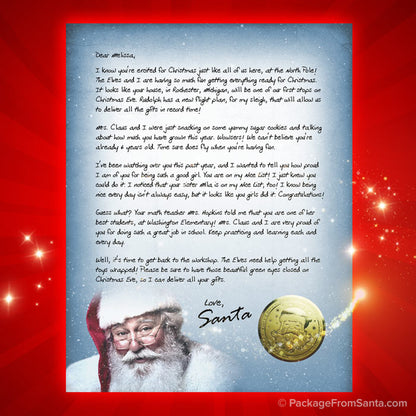 Dear Melissa,
I know you're excited for Christmas just like all of us here, at the North Pole!
The Elves and I are having so much fun getting everything ready for Christmas.
It looks like your house, in Rochester, Michigan, will be one of our first stops on
Christmas Eve. Rudolph has a new flight plan, for my sleigh, that will allow us
to deliver all the gifts in record time!
Mrs. Claus and I were just snacking on some yummy sugar cookies and talking
about how much you have grown this year. Wowsers! We can't believe you're
already 6 years old. Time sure does fly when you're having fun.
I've been watching over you this past year, and I wanted to tell you how proud
I am of you for being such a good girl. You are on my Nice List! I just knew you
could do it. I noticed that your sister Mila is on my Nice List, too! I know being
nice every day isn't always easy, but it looks like you girls did it. Congratulations!
Guess what? Your math teacher Mrs. Hopkins told me that you are one of her
best students, at Washington Elementary! Mrs. Claus and I are very proud of
you for doing such a great job in school. Keep practicing and learning each and
every day.
Well, it's time to get back to the workshop. The Elves need help getting all the
toys wrapped! Please be sure to have those beautiful green eyes closed on
Christmas Eve, so I can deliver all your gifts.
Love,
Santa
© PackageFromSanta.com